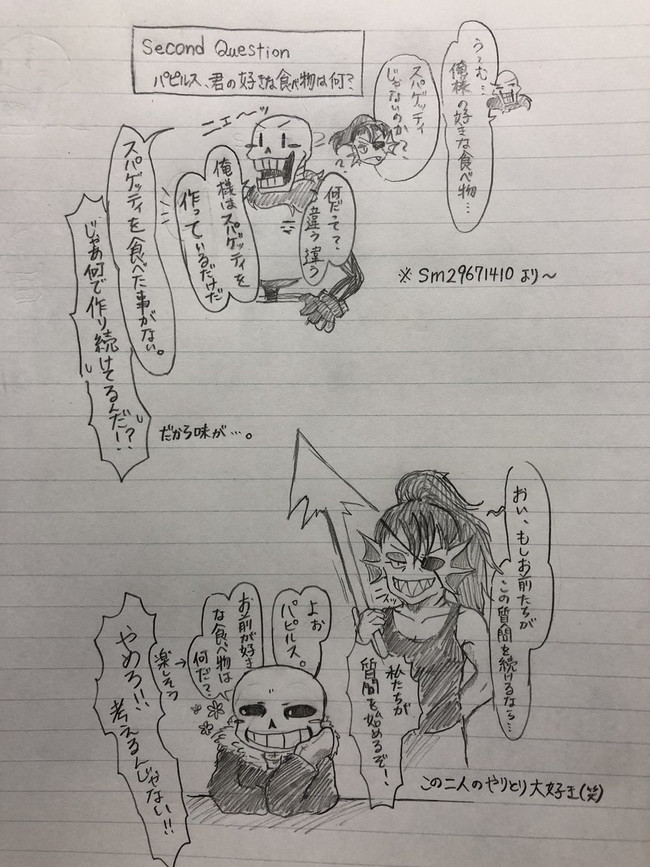 Second Question
パピルス、君の好きな食べ物は何?
うーむ…
俺様の好きな食べ物…
スパゲッティ
じゃないのか?
?
?
ニェ〜ッ
何だって?
違う違う
俺様はスパゲッティを
作っているだけだ
スパゲッティを食べた事がない。
じゃあ何で作り続けてるんだ!?
だから味が…。
※sm29671410より〜
おい、もしお前たちが
この質問を続けるなら…
私たちが
質問を始めるぞ!
よぉ
パピルス。
お前が好き
な食べ物は
何だ?
楽しそう→
やめろ!!
考えるんじゃない!!
この二人のやりとり大好き(笑)